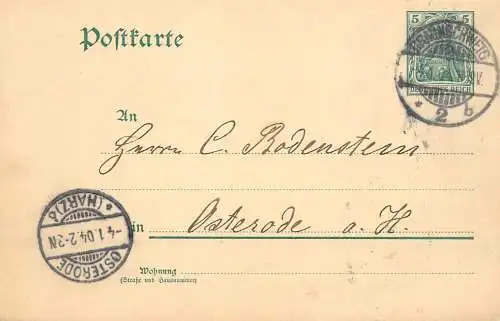 Postkarte
5 5
BRAUNSCHWEIG
* 2 b
DEUTSCHES REICH
An
Herrn C. Bodenstein
in Osterode a. H.
OSTERODE
* (HARZ) b
-4.1.04.2-3N
Wohnung
(Straße und Hausnummer)